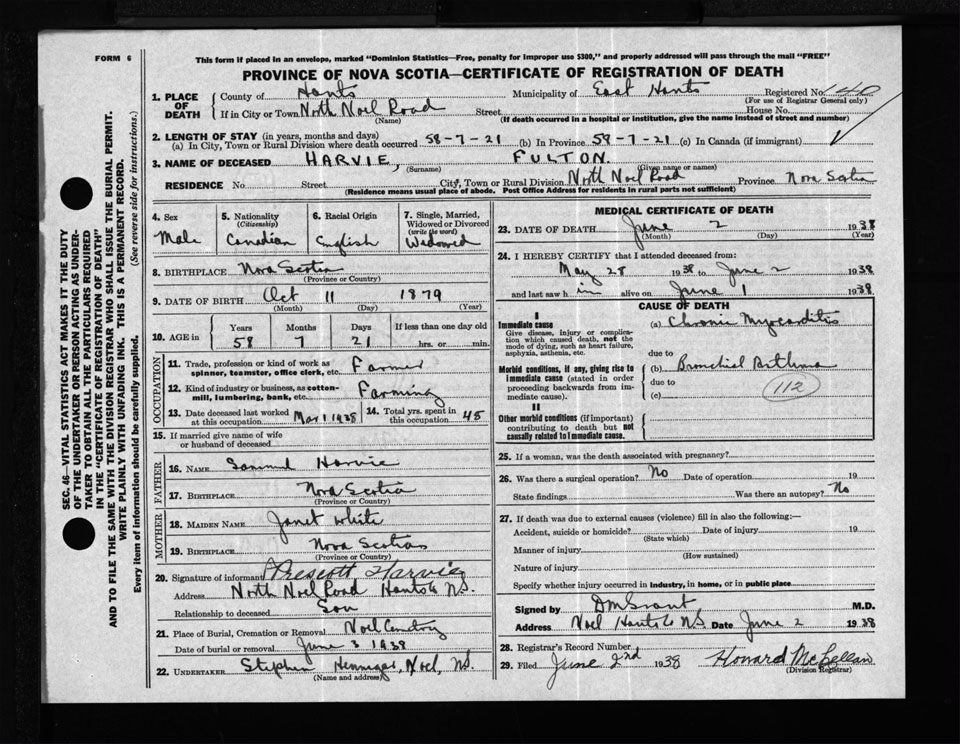 FORM 6
This form if placed in an envelope, marked "Dominion Statistics—Free, penalty for improper use $300," and properly addressed will pass through the mail "FREE"
PROVINCE OF NOVA SCOTIA—CERTIFICATE OF REGISTRATION OF DEATH
1. PLACE OF DEATH
County of Hants Municipality of East Hants Registered No. 140
(For use of Registrar General only)
If in City or Town North Noel Road Street House No.
(Name) (If death occurred in a hospital or institution, give the name instead of street and number)
2. LENGTH OF STAY (in years, months and days)
(a) In City, Town or Rural Division where death occurred 58-7-21 (b) In Province 58-7-21 (c) In Canada (if immigrant)
3. NAME OF DECEASED HARVIE, FULTON.
(Surname) (Given name or names)
RESIDENCE No Street City, Town or Rural Division North Noel Road Province Nova Scotia
(Residence means usual place of abode. Post Office Address for residents in rural parts not sufficient)
4. Sex
Male
5. Nationality
(Citizenship)
Canadian
6. Racial Origin
English
7. Single, Married, Widowed or Divorced
(write the word)
Widowed
8. BIRTHPLACE Nova Scotia
(Province or Country)
9. DATE OF BIRTH Oct 11 1879
(Month) (Day) (Year)
10. AGE in
Years Months Days If less than one day old
58 7 21 hrs. or min.
OCCUPATION
11. Trade, profession or kind of work as spinner, teamster, office clerk, etc. Farmer
12. Kind of industry or business, as cotton-mill, lumbering, bank, etc. Farming
13. Date deceased last worked at this occupation Mar 1 1938
14. Total yrs. spent in this occupation 45
15. If married give name of wife or husband of deceased
FATHER
16. NAME Samuel Harvie
17. BIRTHPLACE Nova Scotia
(Province or Country)
MOTHER
18. MAIDEN NAME Janet White
19. BIRTHPLACE Nova Scotia
(Province or Country)
20. Signature of informant Prescott Harvie
Address North Noel Road Hants Co N.S.
Relationship to deceased Son
21. Place of Burial, Cremation or Removal Noel Cemetery
Date of burial or removal June 3 1938
22. UNDERTAKER Stephen Hennigar, Noel, N.S.
(Name and address)
MEDICAL CERTIFICATE OF DEATH
23. DATE OF DEATH June 2 1938
(Month) (Day) (Year)
24. I HEREBY CERTIFY that I attended deceased from:
May 28 1938 to June 2 1938
and last saw him alive on June 1 1938
CAUSE OF DEATH
I
Immediate cause
Give disease, injury or complication which caused death, not the mode of dying, such as heart failure, asphyxia, asthenia, etc.
(a) Chronic Myocarditis
due to
Morbid conditions, if any, giving rise to immediate cause (stated in order proceeding backwards from immediate cause).
(b) Bronchial Asthma
due to
(c)
112
II
Other morbid conditions (if important) contributing to death but not causally related to I immediate cause.
25. If a woman, was the death associated with pregnancy?
26. Was there a surgical operation? No Date of operation 19
State findings Was there an autopsy? No
27. If death was due to external causes (violence) fill in also the following:—
Accident, suicide or homicide? Date of injury 19
(State which)
Manner of injury
(How sustained)
Nature of injury
Specify whether injury occurred in industry, in home, or in public place
Signed by DM Grant M.D.
Address Noel Hants Co N.S. Date June 2 1938
28. Registrar's Record Number
29. Filed June 2nd 1938 Howard McLellan
(Division Registrar)
SEC. 46—VITAL STATISTICS ACT MAKES IT THE DUTY
OF THE UNDERTAKER OR PERSON ACTING AS UNDER-
TAKER TO OBTAIN ALL THE PARTICULARS REQUIRED
IN THE "CERTIFICATE OF REGISTRATION OF DEATH"
AND TO FILE THE SAME WITH THE DIVISION REGISTRAR WHO SHALL ISSUE THE BURIAL PERMIT.
WRITE PLAINLY WITH UNFADING INK. THIS IS A PERMANENT RECORD.
Every item of information should be carefully supplied. (See reverse side for instructions.)